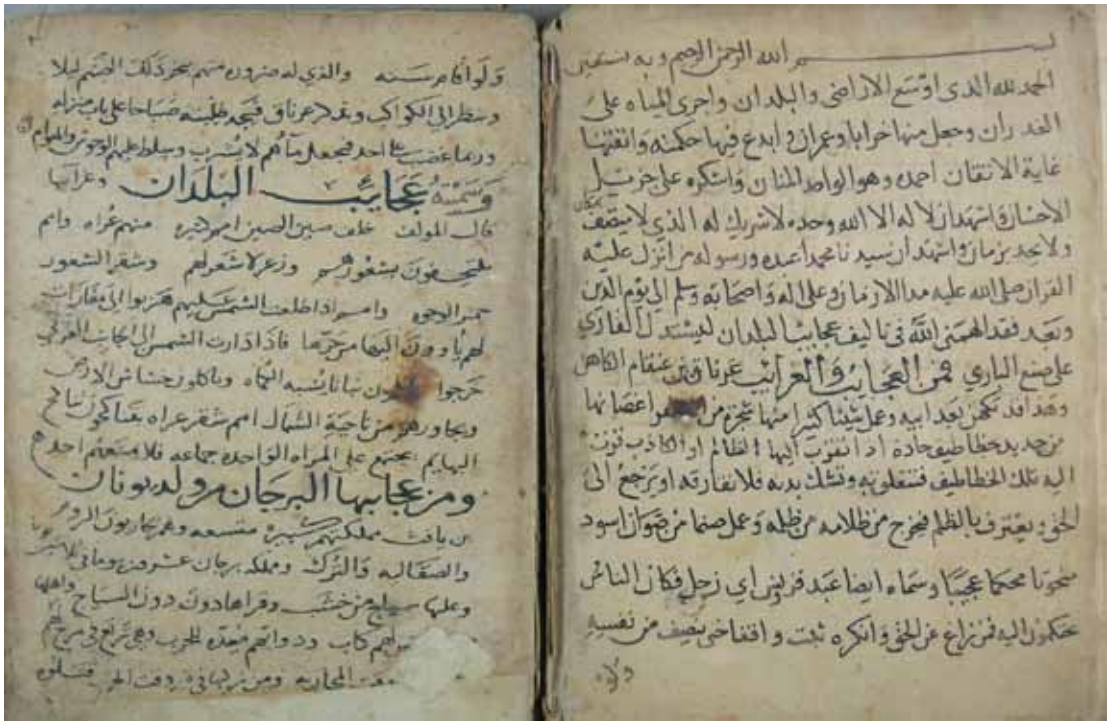 بسم الله الرحمن الرحيم وبه نستعين
الحمد لله الذى اوسع الاراضى والبلدان واجرى المياه على
الغدران وجعل منها خرابا وعمران وابدع فيها حكمته واتقنها
غاية الاتقان احمده وهو الواحد المنان واشكره على جزيل
الاحسان واشهد ان لا اله الا الله وحده لا شريك له الذى لا يتصف بمكان
ولا يحد بزمان واشهد ان سيدنا محمدا عبده ورسوله من انزل عليه
القران صلى الله عليه مدا الازمان وعلى اله واصحابه وسلم الى يوم الدين
وبعد فقد الهمنى الله فى تاليف عجائب البلدان ليستدل القارئ
على صنع البارى فمن العجايب والغرايب عرناق بن عنقام الكاهن
وهدا قد تكهن بعد ابيه وعمل شيئا كثيرا منها شجره من اعضانها
من حديد بخطاطيف حاده اذا تقرب اليها الظالم او الكاذب
اليه تلك الخطاطيف فتتعلق به وتشك بدنه فلا تفارقه او يرجع الى
الحق ويعترف بالظلم فيخرج من ظلامه من ظلمه وعمل صنما من صوان اسود
محكما عجيبا وسماه ايضا عبد اى زحل فكان الناس
يتحكمون اليه فمن زاغ عن الحق وانكره ثبت من نفسه
ولو
ولو اقام سنه والذى له ضروره منهم يبخر ذلك الصنم ليلا
وينظر الى الكواكب عرناق فيجد طلبته صباحا على باب منزله
وربما غضب على احد فيجعل ماهم لا يشرب وسلط عليهم الوحوش والهوام
وسميته عجايب البلدان وغرايبها
قال المولف خلف صين الصين امم كثيره منهم عراه وامم
يلتحفون بشعورهم وزعر لا شعر لهم وشقر الشعور
حمر الوجوه وامم اذا طلعت الشمس عليهم هربوا الى مغارات
لهم ياوون اليها من حرها فاذا دارت الشمس الى الجانب الغربى
خرجوا نباتا يشبه الكماه وياكلون خشاش الارض
ويجاورهم من ناحية الشمال امم شقر عراه يتناكحون تناكح
البهايم يجتمع على المراه الواحده جماعه فلا يمنعهم احد
ومن عجايبها البرجان من ولد يونان
بن يافث مملكتهم كبيره متسعه وهم يحاربون الروم
والصقالبه والترك وملك برجان عشرون يوما فى
وعليها سياج من خشب وقراها دون السياج واهلها
لهم كتاب ودوابهم معده للحرب وهى ترتع فى مروجهم
وقت المحاربه ومن فى وقت قتلوه